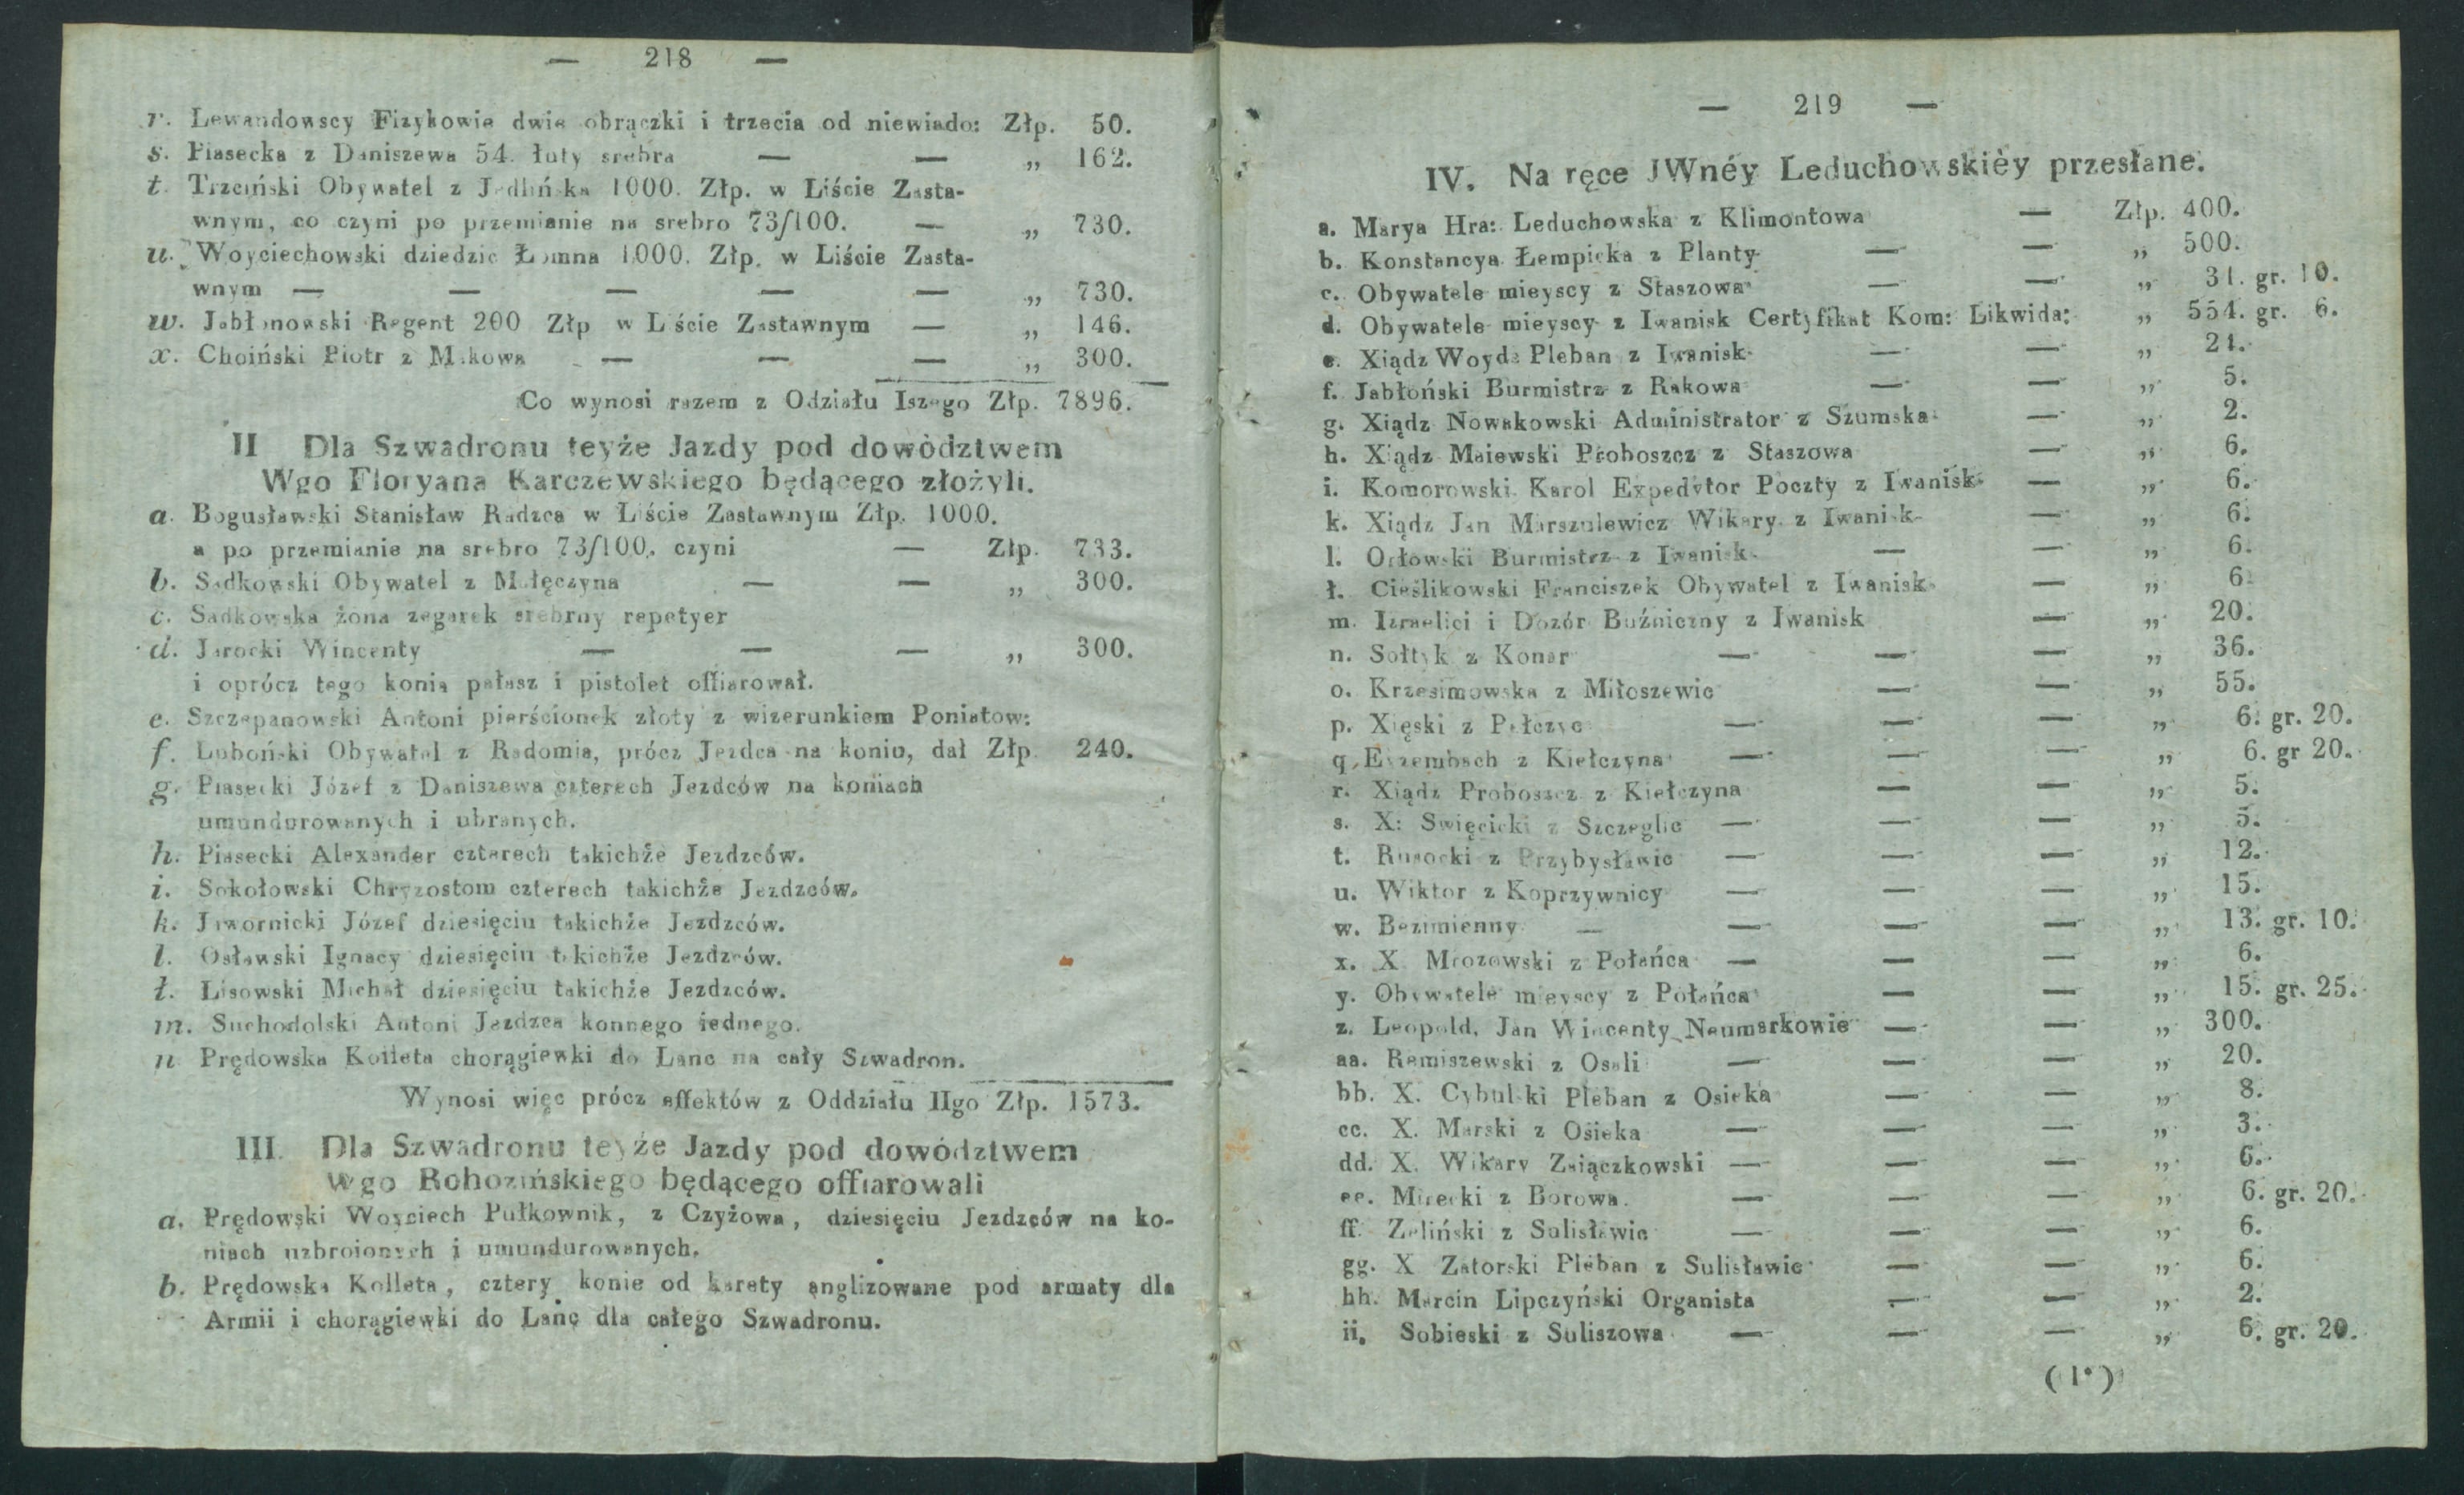 — 218 —
r. Lewandowscy Fizykowie dwie obrączki i trzecia od niewiado: Złp. 50.
s. Piasecka z Daniszewa 54. łuty srebra — — „ 162.
t. Trzciński Obywatel z Jedlińska 1000. Złp. w Liście Zasta-
wnym, co czyni po przemianie na srebro 73/100. — „ 730.
u. Woyciechowski dziedzic Łomna 1000. Złp. w Liście Zasta-
wnym — — — — — „ 730.
w. Jabłonowski Regent 200 Złp w Liście Zastawnym — „ 146.
x. Choiński Piotr z Makowa — — — „ 300.
Co wynosi razem z Odziału Iszego Złp. 7896.
II Dla Szwadronu teyże Jazdy pod dowòdztwem
Wgo Floryana Karczewskiego będącego złożyli.
a. Bogusławski Stanisław Radzca w Liście Zastawnym Złp. 1000.
a po przemianie na srebro 73/100. czyni — Złp. 733.
b. Sadkowski Obywatel z Małęczyna — — „ 300.
c. Sadkowska żona zegarek srebrny repetyer
d. Jarocki Wincenty — — — „ 300.
i oprócz tego konia pałasz i pistolet offiarował.
e. Szczepanowski Antoni pierścionek złoty z wizerunkiem Poniatow:
f. Luboński Obywatel z Radomia, prócz Jezdca na koniu, dał Złp. 240.
g. Piasecki Józef z Daniszewa czterech Jezdców na koniach
umundurowanych i ubranych.
h. Piasecki Alexander czterech takichże Jezdzców.
i. Sokołowski Chryzostom czterech takichże Jezdzców.
k. Jawornicki Józef dziesięciu takichże Jezdzców.
l. Osławski Ignacy dziesięciu takichże Jezdzców.
ł. Lisowski Michał dziesięciu takichże Jezdzców.
m. Suchodolski Antoni Jezdzca konnego iednego.
n Prędowska Kolleta chorągiewki do Lanc na cały Szwadron.
Wynosi więc prócz effektów z Oddziału IIgo Złp. 1573.
III. Dla Szwadronu teyże Jazdy pod dowództwem
Wgo Rohozińskiego będącego offiarowali
a. Prędowski Woyciech Pułkownik, z Czyżowa, dziesięciu Jezdzców na ko-
niach uzbroionych i umundurowanych.
b. Prędowska Kolleta, cztery konie od karety anglizowane pod armaty dla
Armii i chorągiewki do Lanc dla całego Szwadronu.
— 219 —
IV. Na ręce JWnéy Leduchowskièy przesłane.
a. Marya Hra: Leduchowska z Klimontowa — Złp. 400.
b. Konstancya Łempicka z Planty — — „ 500.
c. Obywatele mieyscy z Staszowa — — „ 31. gr. 10.
d. Obywatele mieyscy z Iwanisk Certyfikat Kom: Likwida: „ 554. gr. 6.
e. Xiądz Woyda Pleban z Iwanisk — — „ 21.
f. Jabłoński Burmistrz z Rakowa — — „ 5.
g. Xiądz Nowakowski Administrator z Szumska — „ 2.
h. Xiądz Maiewski Proboszcz z Staszowa — „ 6.
i. Komorowski Karol Expedytor Poczty z Iwanisk — „ 6.
k. Xiądz Jan Marszulewicz Wikary z Iwanisk — „ 6.
l. Orłowski Burmistrz z Iwanisk — — „ 6.
ł. Cieślikowski Franciszek Obywatel z Iwanisk — „ 6.
m. Izraelici i Dozór Buźniczny z Iwanisk — „ 20.
n. Sołtyk z Konar — — — „ 36.
o. Krzesimowska z Miłoszewic — — „ 55.
p. Xięski z Pełczyc — — — „ 6. gr. 20.
q. Eyzembach z Kiełczyna — — — „ 6. gr 20.
r. Xiądz Proboszcz z Kiełczyna — — „ 5.
s. X: Swięcicki z Szczeglic — — — „ 5.
t. Rusocki z Przybysławic — — — „ 12.
u. Wiktor z Koprzywnicy — — — „ 15.
w. Bezimienny — — — — „ 13. gr. 10.
x. X Mrozowski z Połańca — — — „ 6.
y. Obywatele mieyscy z Połańca — — „ 15. gr. 25.
z. Leopold, Jan Wincenty Neumarkowie — — „ 300.
aa. Remiszewski z Osali — — — „ 20.
bb. X. Cybulski Pleban z Osieka — — „ 8.
cc. X. Marski z Osieka — — — „ 3.
dd. X. Wikary Zaiączkowski — — — „ 6.
ee. Mirecki z Borowa. — — — „ 6. gr. 20.
ff. Zeliński z Sulisławic — — — „ 6.
gg. X Zatorski Pleban z Sulisławic — — „ 6.
hh. Marcin Lipczyński Organista — — „ 2.
ii. Sobieski z Suliszowa — — — „ 6. gr. 20.
(1*)